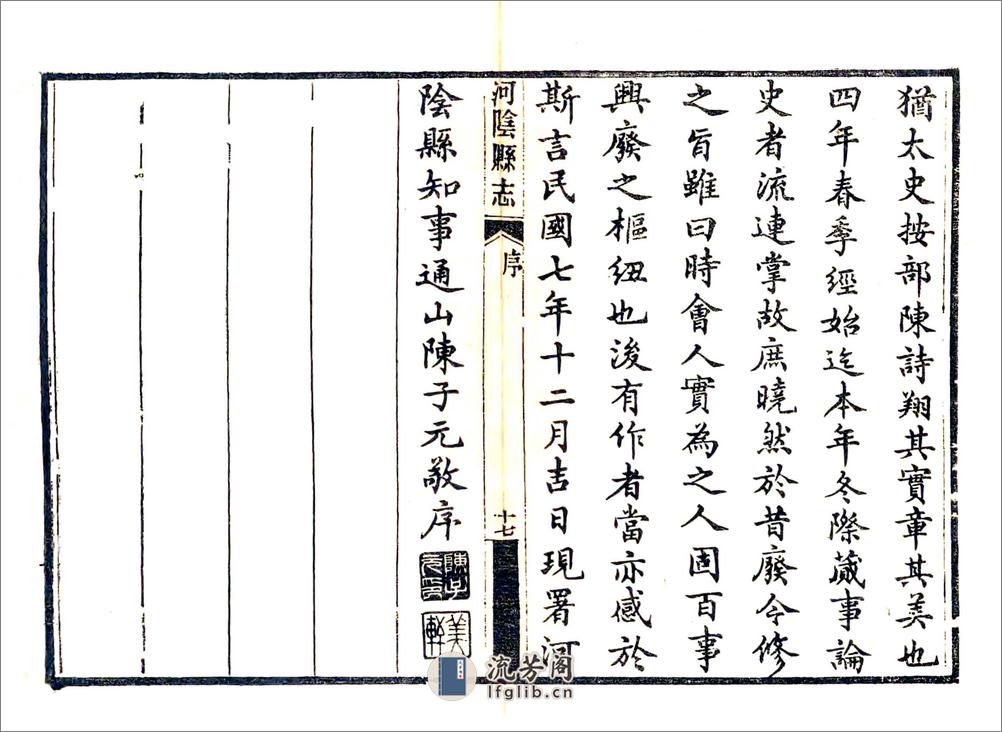 猶太史按部陳詩翔其實章其美也
四年春季經始迄本年冬際蕆事論
史者流連掌故庶曉然於昔廢今修
之旨雖曰時會人實為之人固百事
興廢之樞紐也後有作者當亦感於
斯言民國七年十二月吉日現署河
河陰縣志
序
十七
陰縣知事通山陳子元敬序
陳子元印
美軒
流芳阁
lfglib.cn